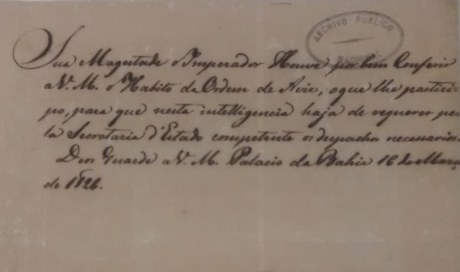 ARCHIVO PUBLICO
Sua Magestade o Imperador Houve por bem Conferir
a V. M. o Habito da Ordem de Aviz, o que lhe partici-
po, para que nesta intelligencia haja de requerer pe-
la Secretaria d'Estado competente os despachos necessarios.
Deos Guarde a V. M. Palacio da Bahia 16 de Março
de 1826.